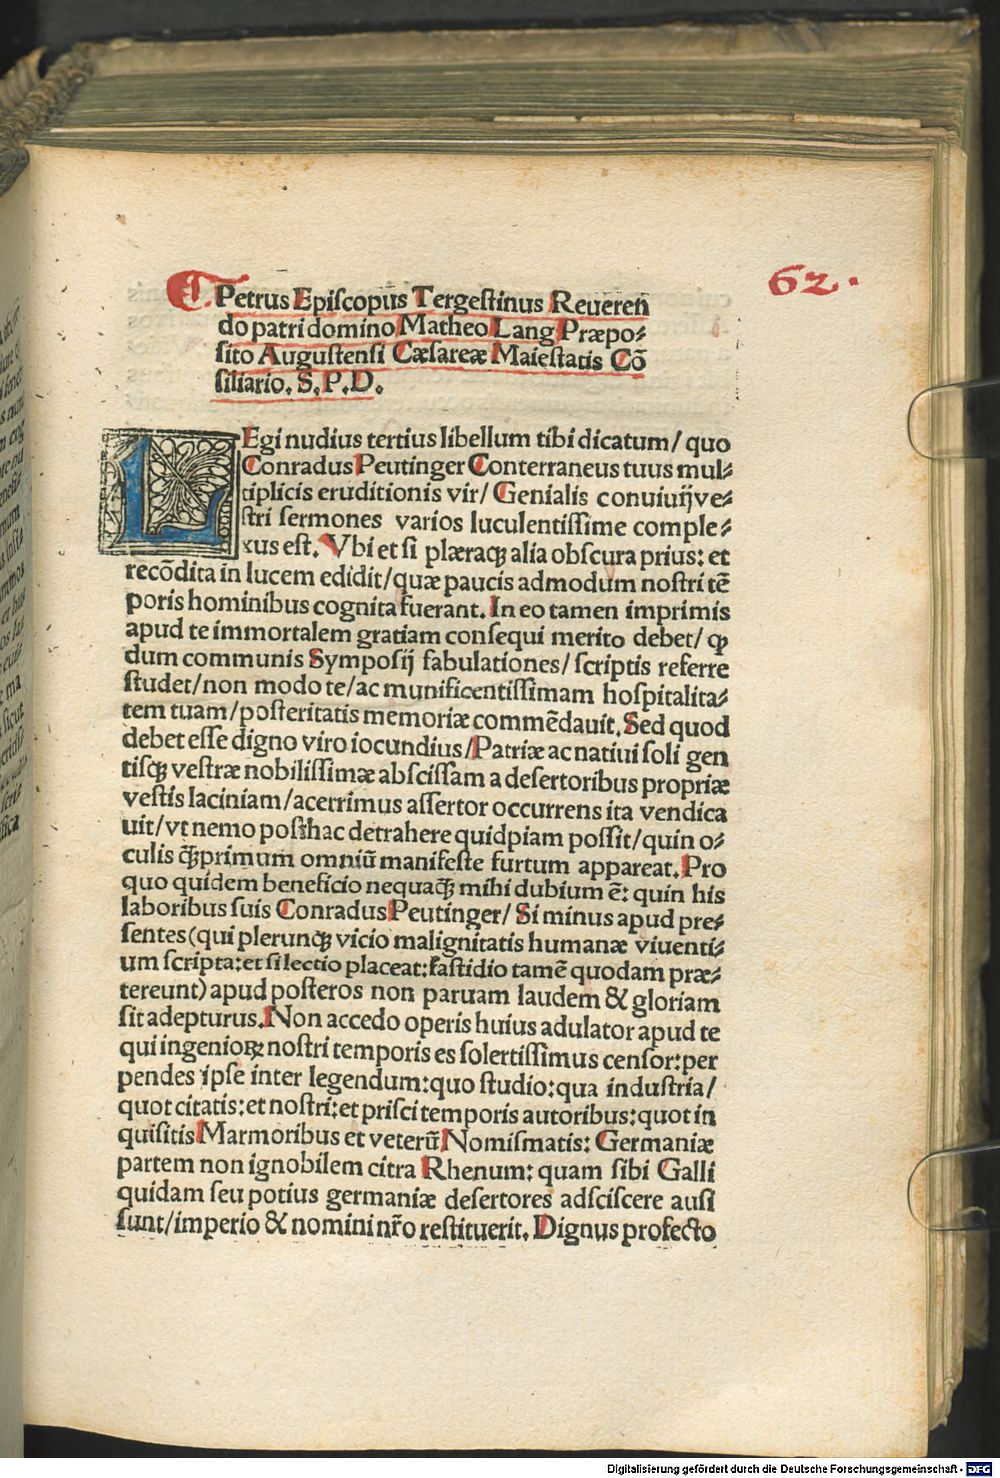 62.
Petrus Episcopus Tergestinus Reuereñ
do patri domino Matheo Lang Præpo⸗
sito Augustensi Cæsareæ Maiestatis Cõ
siliario. S. P. D.
LEgi nudius tertius libellum tibi dicatum/ quo
Conradus Peutinger Conterraneus tuus mul⸗
tiplicis eruditionis vir/ Genialis conuiuij ve⸗
stri sermones varios luculentissime comple⸗
xus est. Vbi et si plæraqꝫ alia obscura prius: et
recõdita in lucem edidit/ quæ paucis admodum nostri tẽ
poris hominibus cognita fuerant. In eo tamen imprimis
apud te immortalem gratiam consequi merito debet/ ꝙ
dum communis Symposij fabulationes/ scriptis referre
studet/ non modo te/ ac munificentissimam hospitalita⸗
tem tuam/ posteritatis memoriæ commẽdauit. Sed quod
debet esse digno viro iocundius/ Patriæ ac natiui soli gen
tisqꝫ vestræ nobilissimæ abscissam a desertoribus propriæ
vestis laciniam/ acerrimus assertor occurrens ita vendica
uit/ vt nemo posthac detrahere quidpiam possit/ quin o⸗
culis q̃ꝫprimum omniũ manifeste furtum appareat. Pro
quo quidem beneficio nequaq̃ꝫ mihi dubium ẽ: quin his
laboribus suis Conradus Peutinger/ Si minus apud pre⸗
sentes (qui plerunqꝫ vicio malignitatis humanæ viuenti⸗
um scripta: et si lectio placeat: fastidio tamẽ quodam præ⸗
tereunt) apud posteros non paruam laudem & gloriam
sit adepturus. Non accedo operis huius adulator apud te
qui ingenioꝝ nostri temporis es solertissimus censor: per
pendes ipse inter legendum: quo studio: qua industria/
quot citatis: et nostri: et prisci temporis autoribus: quot in
quisitis Marmoribus et veterũ Nomismatis: Germaniæ
partem non ignobilem citra Rhenum: quam sibi Galli
quidam seu potius germaniæ desertores adsciscere ausi
sunt/ imperio & nomini nr̃o restituerit. Dignus profecto
Digitalisierung gefördert durch die Deutsche Forschungsgemeinschaft - DFG